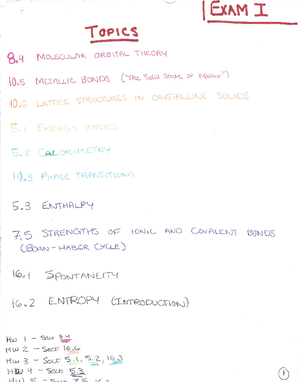 EXAM I
TOPICS
8.4 MOLECULAR ORBITAL THEORY
10.5 METALLIC BONDS ("The Solid State of Matter")
10.6 LATTICE STRUCTURES IN CRYSTALLINE SOLIDS
5.1 ENERGY BASICS
5.2 CALORIMETRY
10.3 PHASE TRANSITIONS
5.3 ENTHALPY
7.5 STRENGTHS OF IONIC AND COVALENT BONDS
(BORN-HABER CYCLE)
16.1 SPONTANEITY
16.2 ENTROPY (INTRODUCTION)
HW 1 - Sect 8.4
HW 2 - Sect 10.6
HW 3 - Sect 5.1, 5.2, 10.3
HW 4 - Sect 5.3
HW 5 - Sect 7.5
1